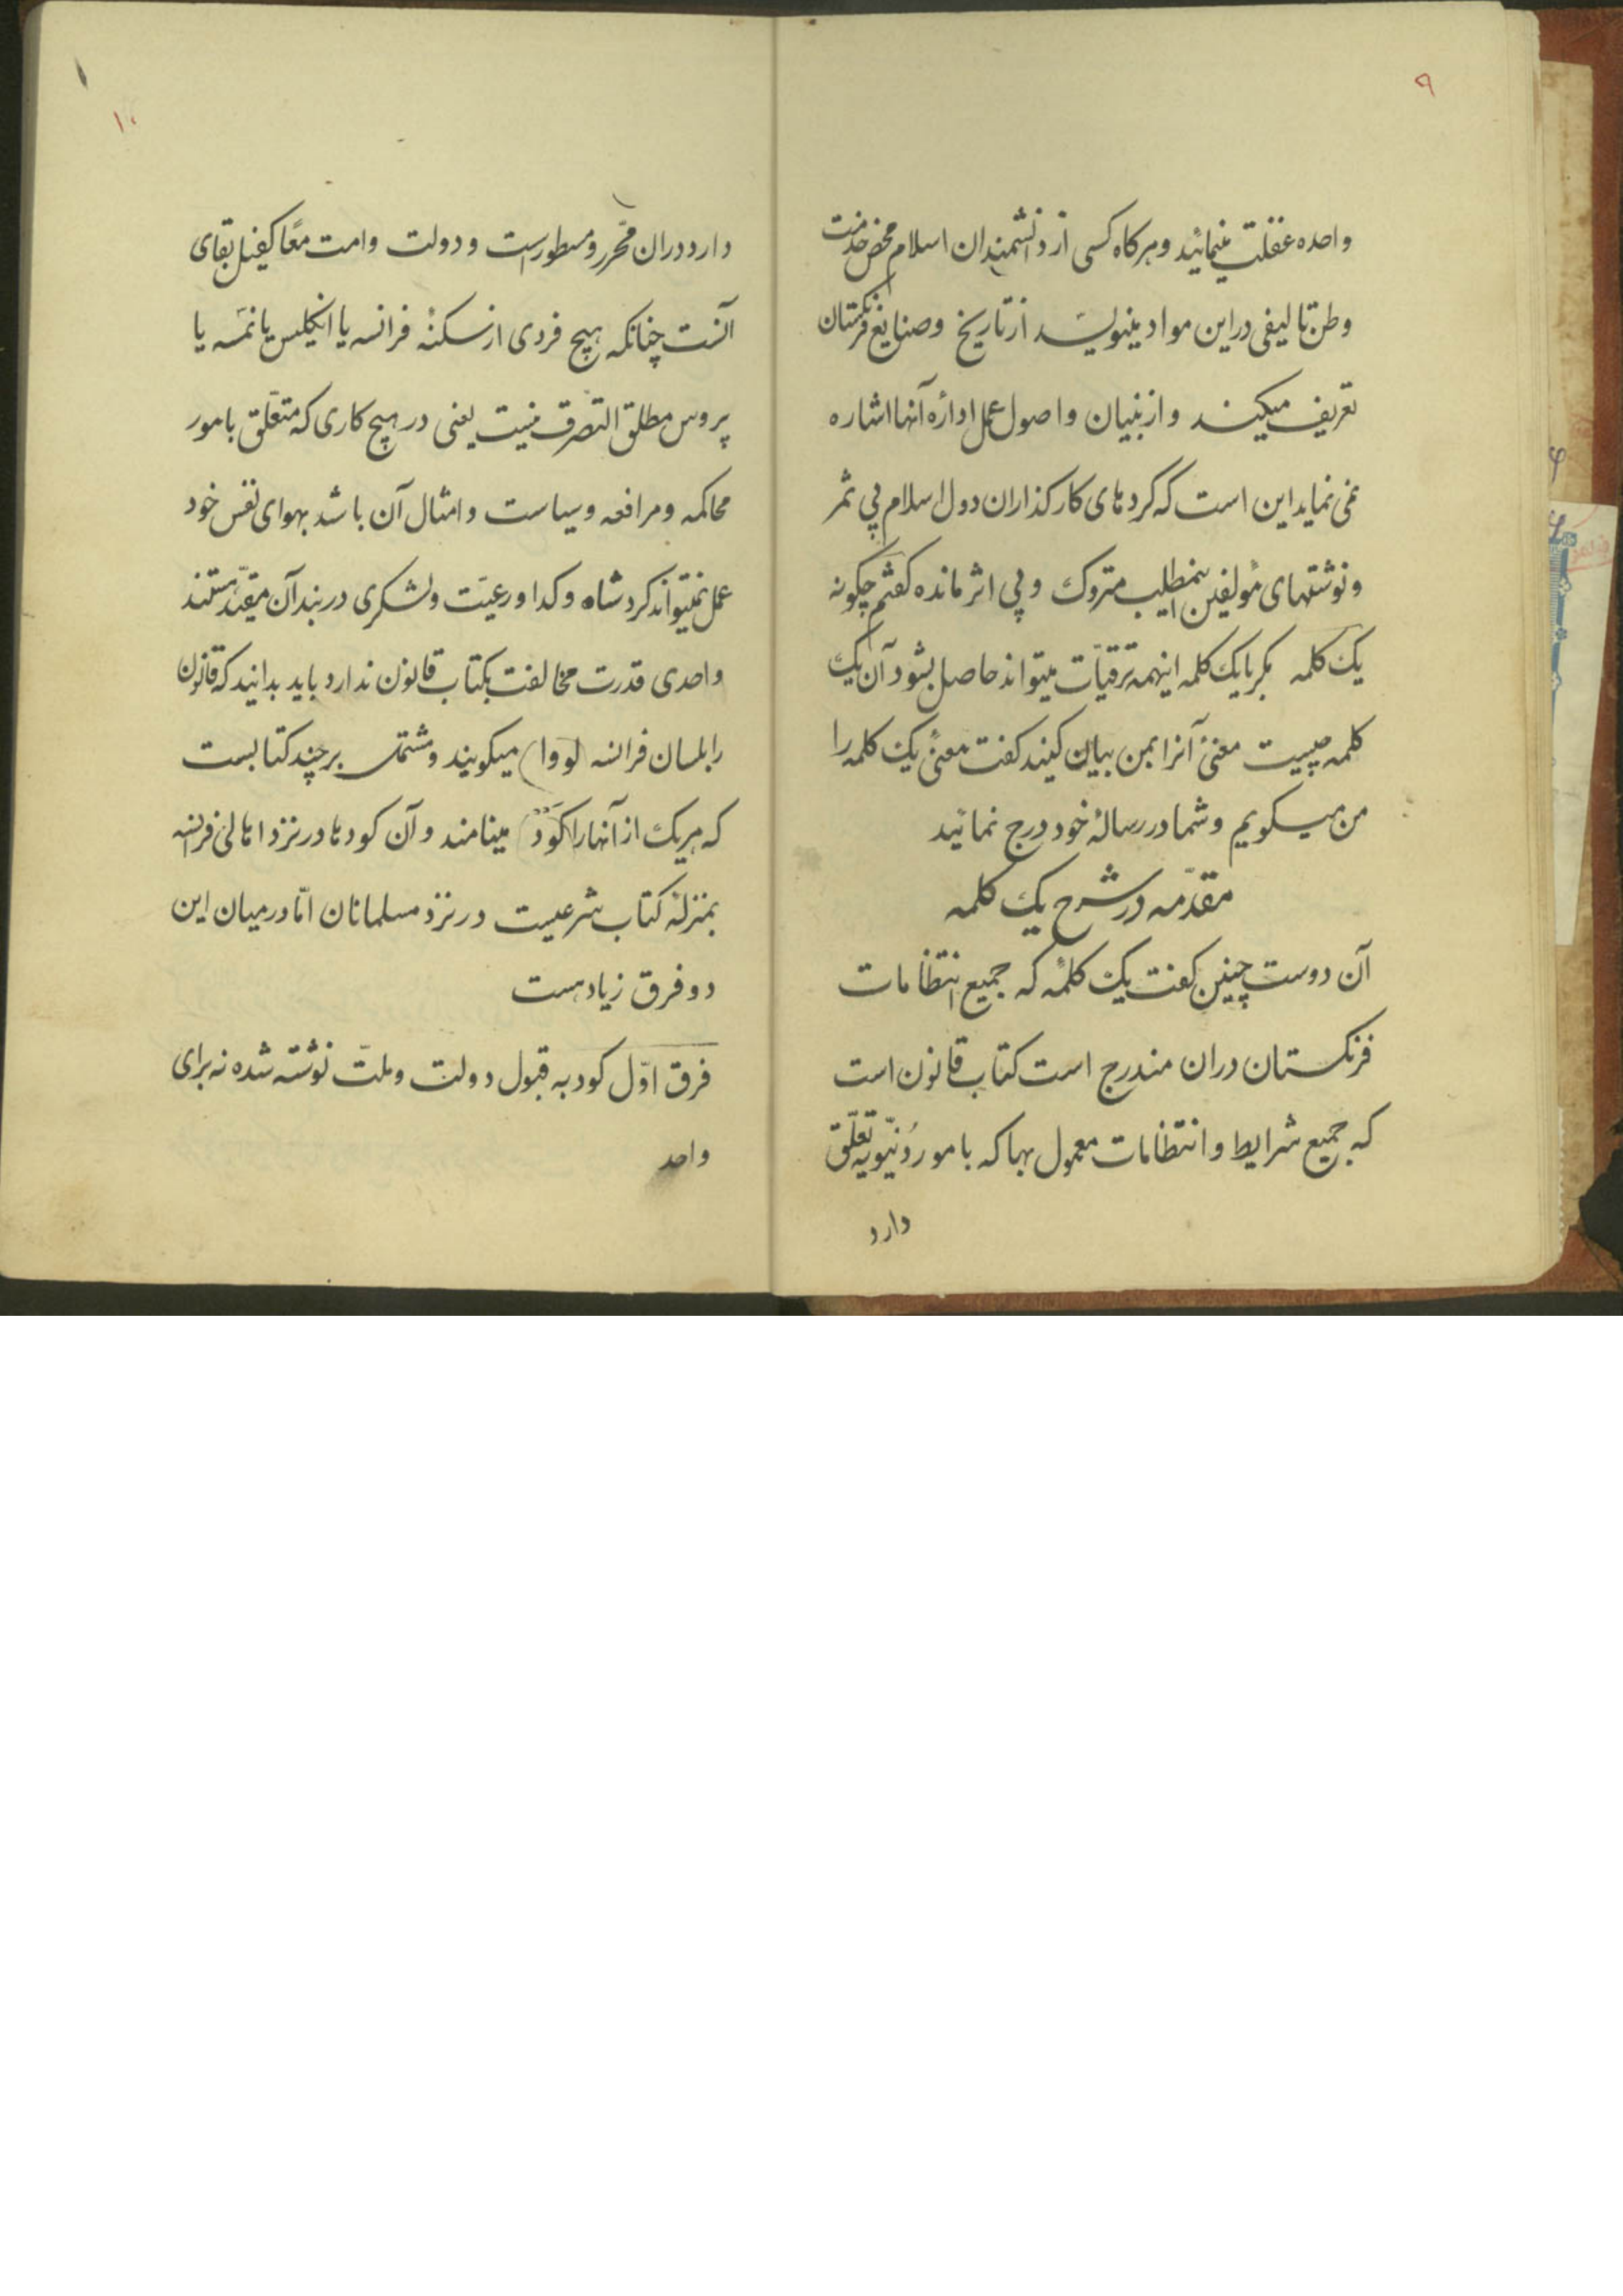 ۹
واحده غفلت مینمائید و هرکاه کسی از دانشمندان اسلام محض خدمت
وطن تالیفی در این مواد مینویسد از تاریخ و صنایع فرنکستان
تعریف میکند و از بنیان و اصول عمل ادارهٔ آنها اشاره
نمی نماید این است که کردهای کارکذاران دول اسلام بی ثمر
و نوشتهای مؤلفین بیمطلب متروک و بی اثر مانده کفتم چکونه
یک کلمه مکر با یک کلمه اینهمه ترقیات میتواند حاصل بشود آن یک
کلمه چیست معنیٔ آنرا بمن بیان کنید کفت معنیٔ یک کلمه را
من میکویم و شما در رسالهٔ خود درج نمائید
مقدّمه در شرح یک کلمه
آن دوست چنین کفت یک کلمهٔ که جمیع انتظامات
فرنکستان دران مندرج است کتاب قانون است
که جمیع شرایط و انتظامات معمول بها که بامور دُنیویّه تعلّق
دارد
۱۰
دارد دران محّرر و مسطور است و دولت و امت معًا کفیل بقای
آنست چنانکه هیچ فردی از سکنهٔ فرانسه یا انکلیس یا نمسه یا
پروس مطلق التصرّف نیست یعنی در هیچ کاری که متعلّق بامور
محاکمه و مرافعه و سیاست و امثال آن باشد بهوای نفس خود
عمل نمیتواند کرد شاه و کدا و رعیّت و لشکری در بند آن مقیّد هستند
واحدی قدرت مخالفت بکتاب قانون ندارد باید بدانید که قانون
را بلسان فرانسه (لووا) میکویند و مشتمل بر چند کتابست
که هریک از آنها را (کَوَد) مینامند و آن کودها در نزد اهالی فرانسه
بمنزلهٔ کتاب شرعیست در نزد مسلمانان امّا در میان این
دو فرق زیاد هست
فرق اوّل کود به قبول دولت و ملّت نوشته شده نه برای
واحد